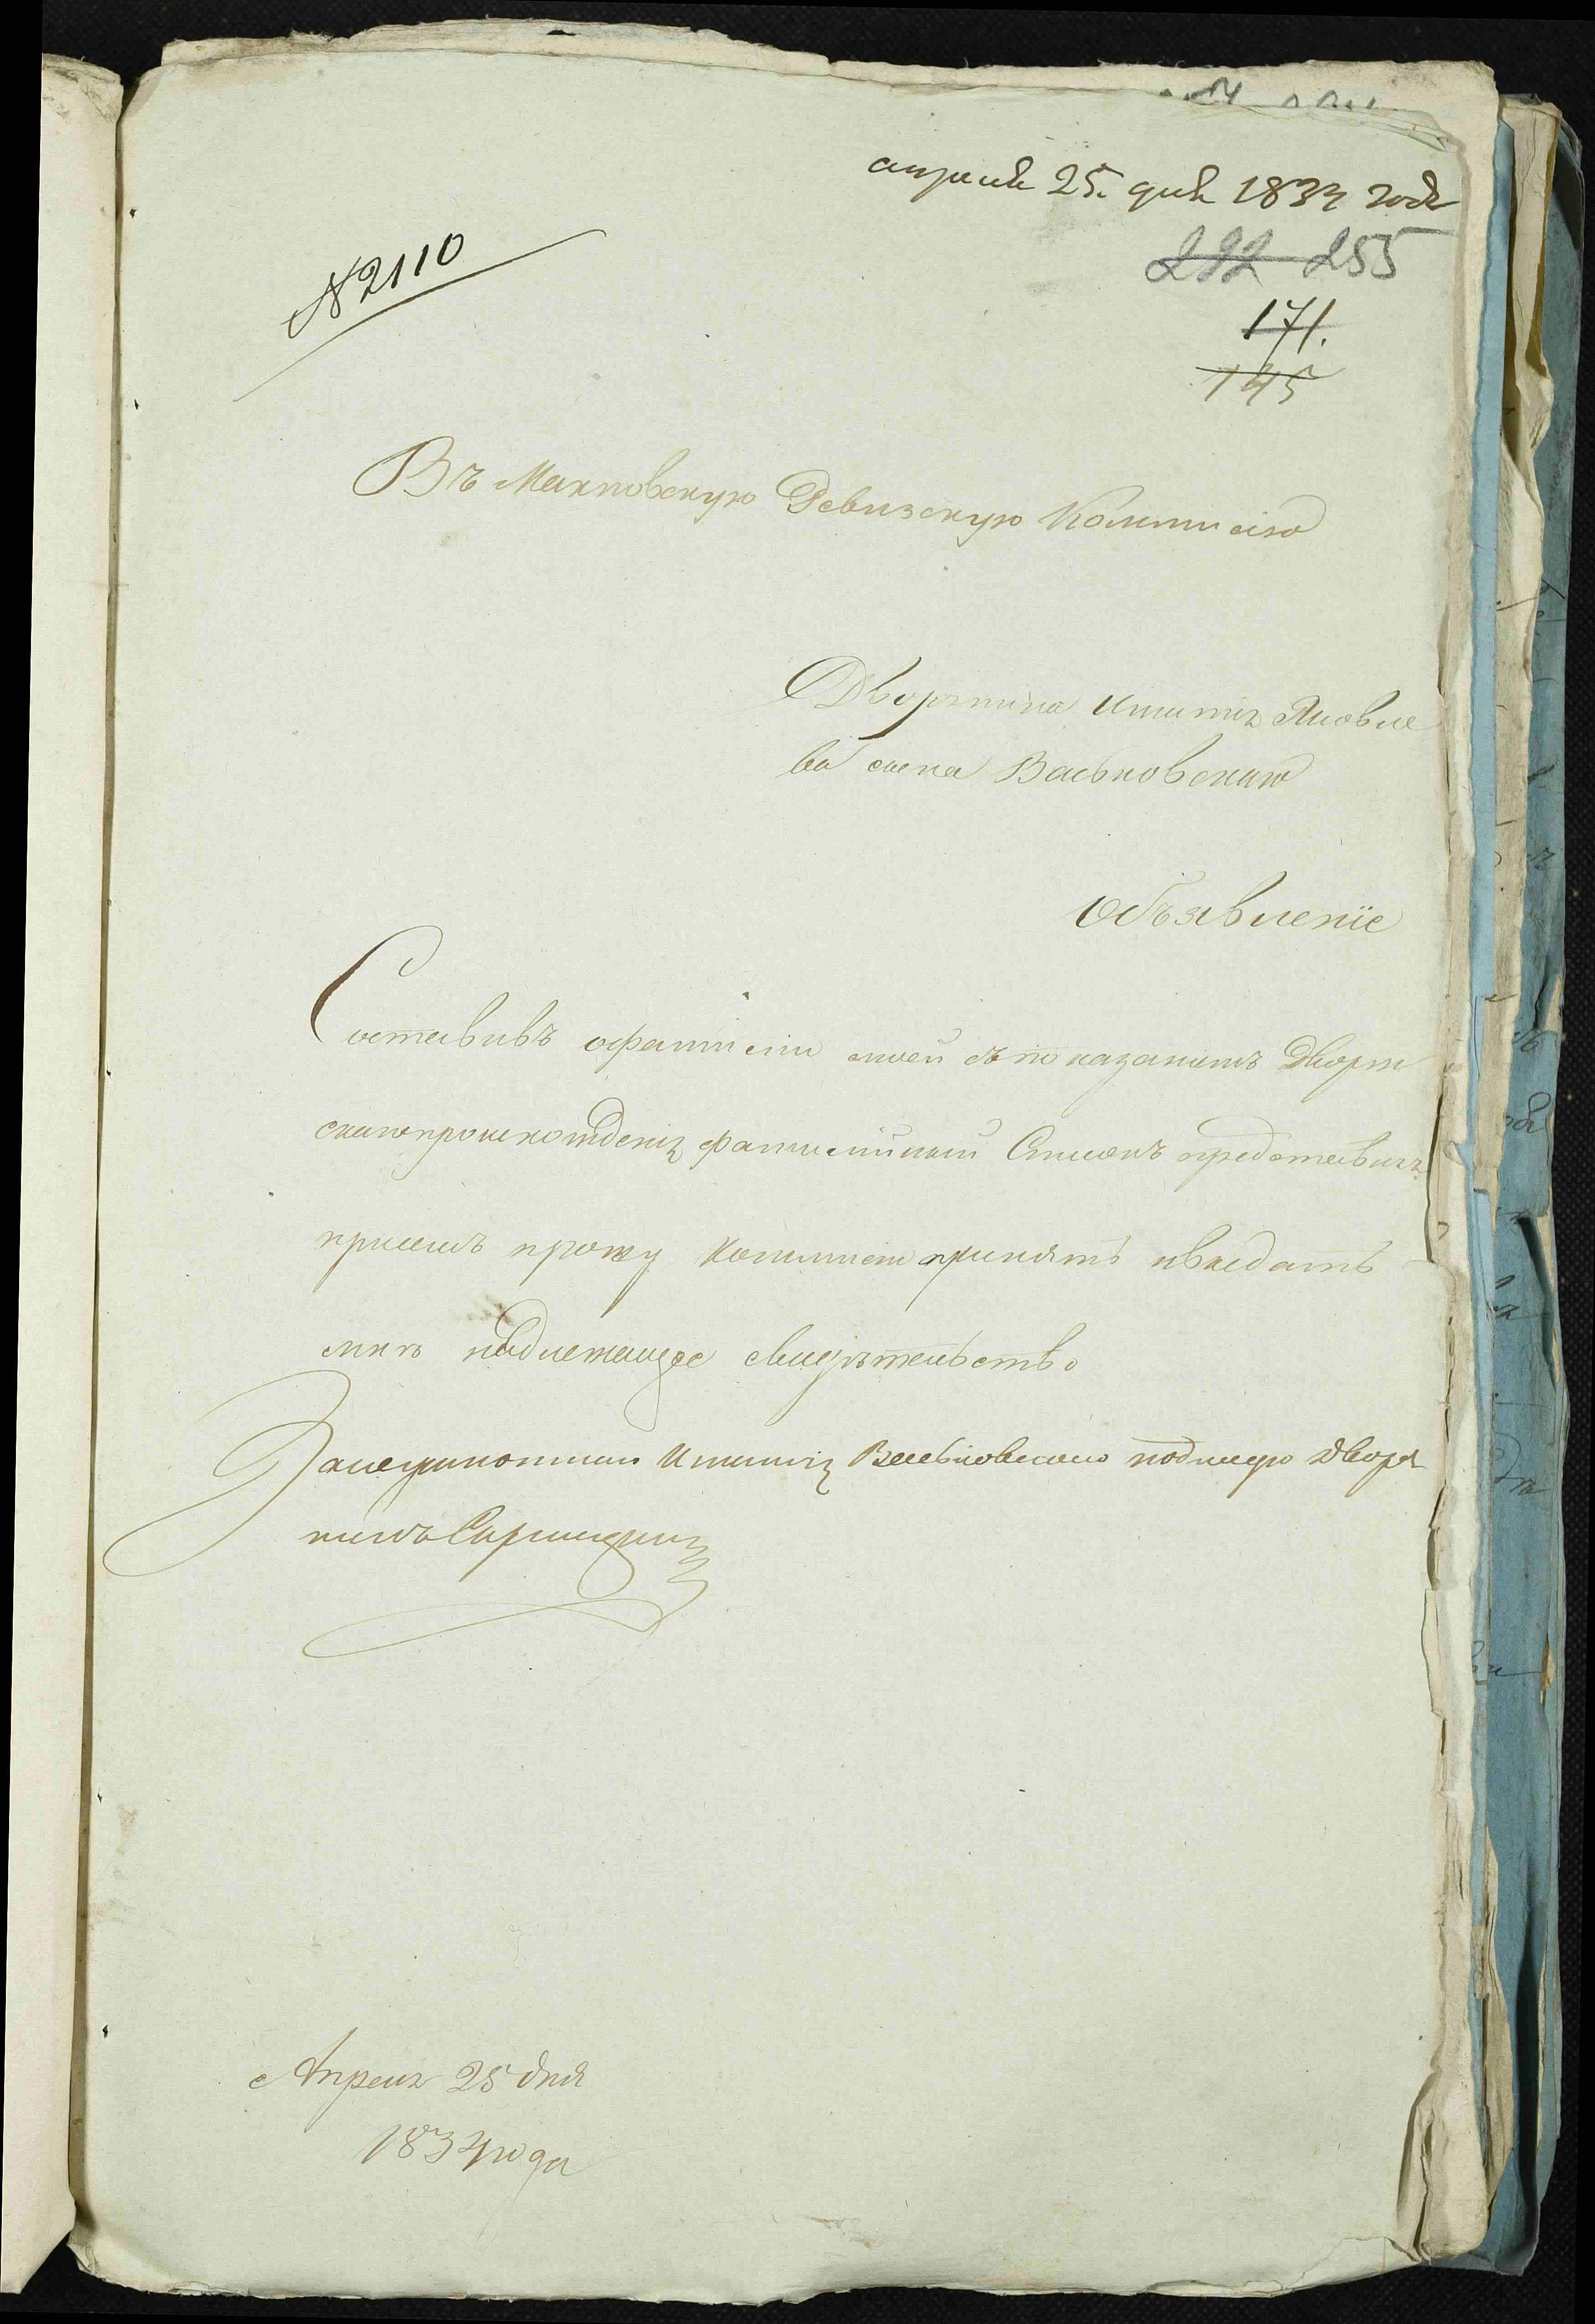 апреля 25. дня 1834 года
№ 2110
292 255
171.
145
Въ Махновскую Ревизскую Коммисію
Дворянина Игнатія Яковле
ва сына Васьковскаго
Объявленіе
Составивъ офамиліи моей съ показаніемъ Дворян
скаго происхожденія фамилійный Списокъ представляя
присемъ прошу Коммисію принять ивыдать
мнѣ надлежащее свидѣтельство
Занеграмотнаго Игнатія Васьковскаго подписую Дворя
нинъ
Апреля 25 дня
1834 года